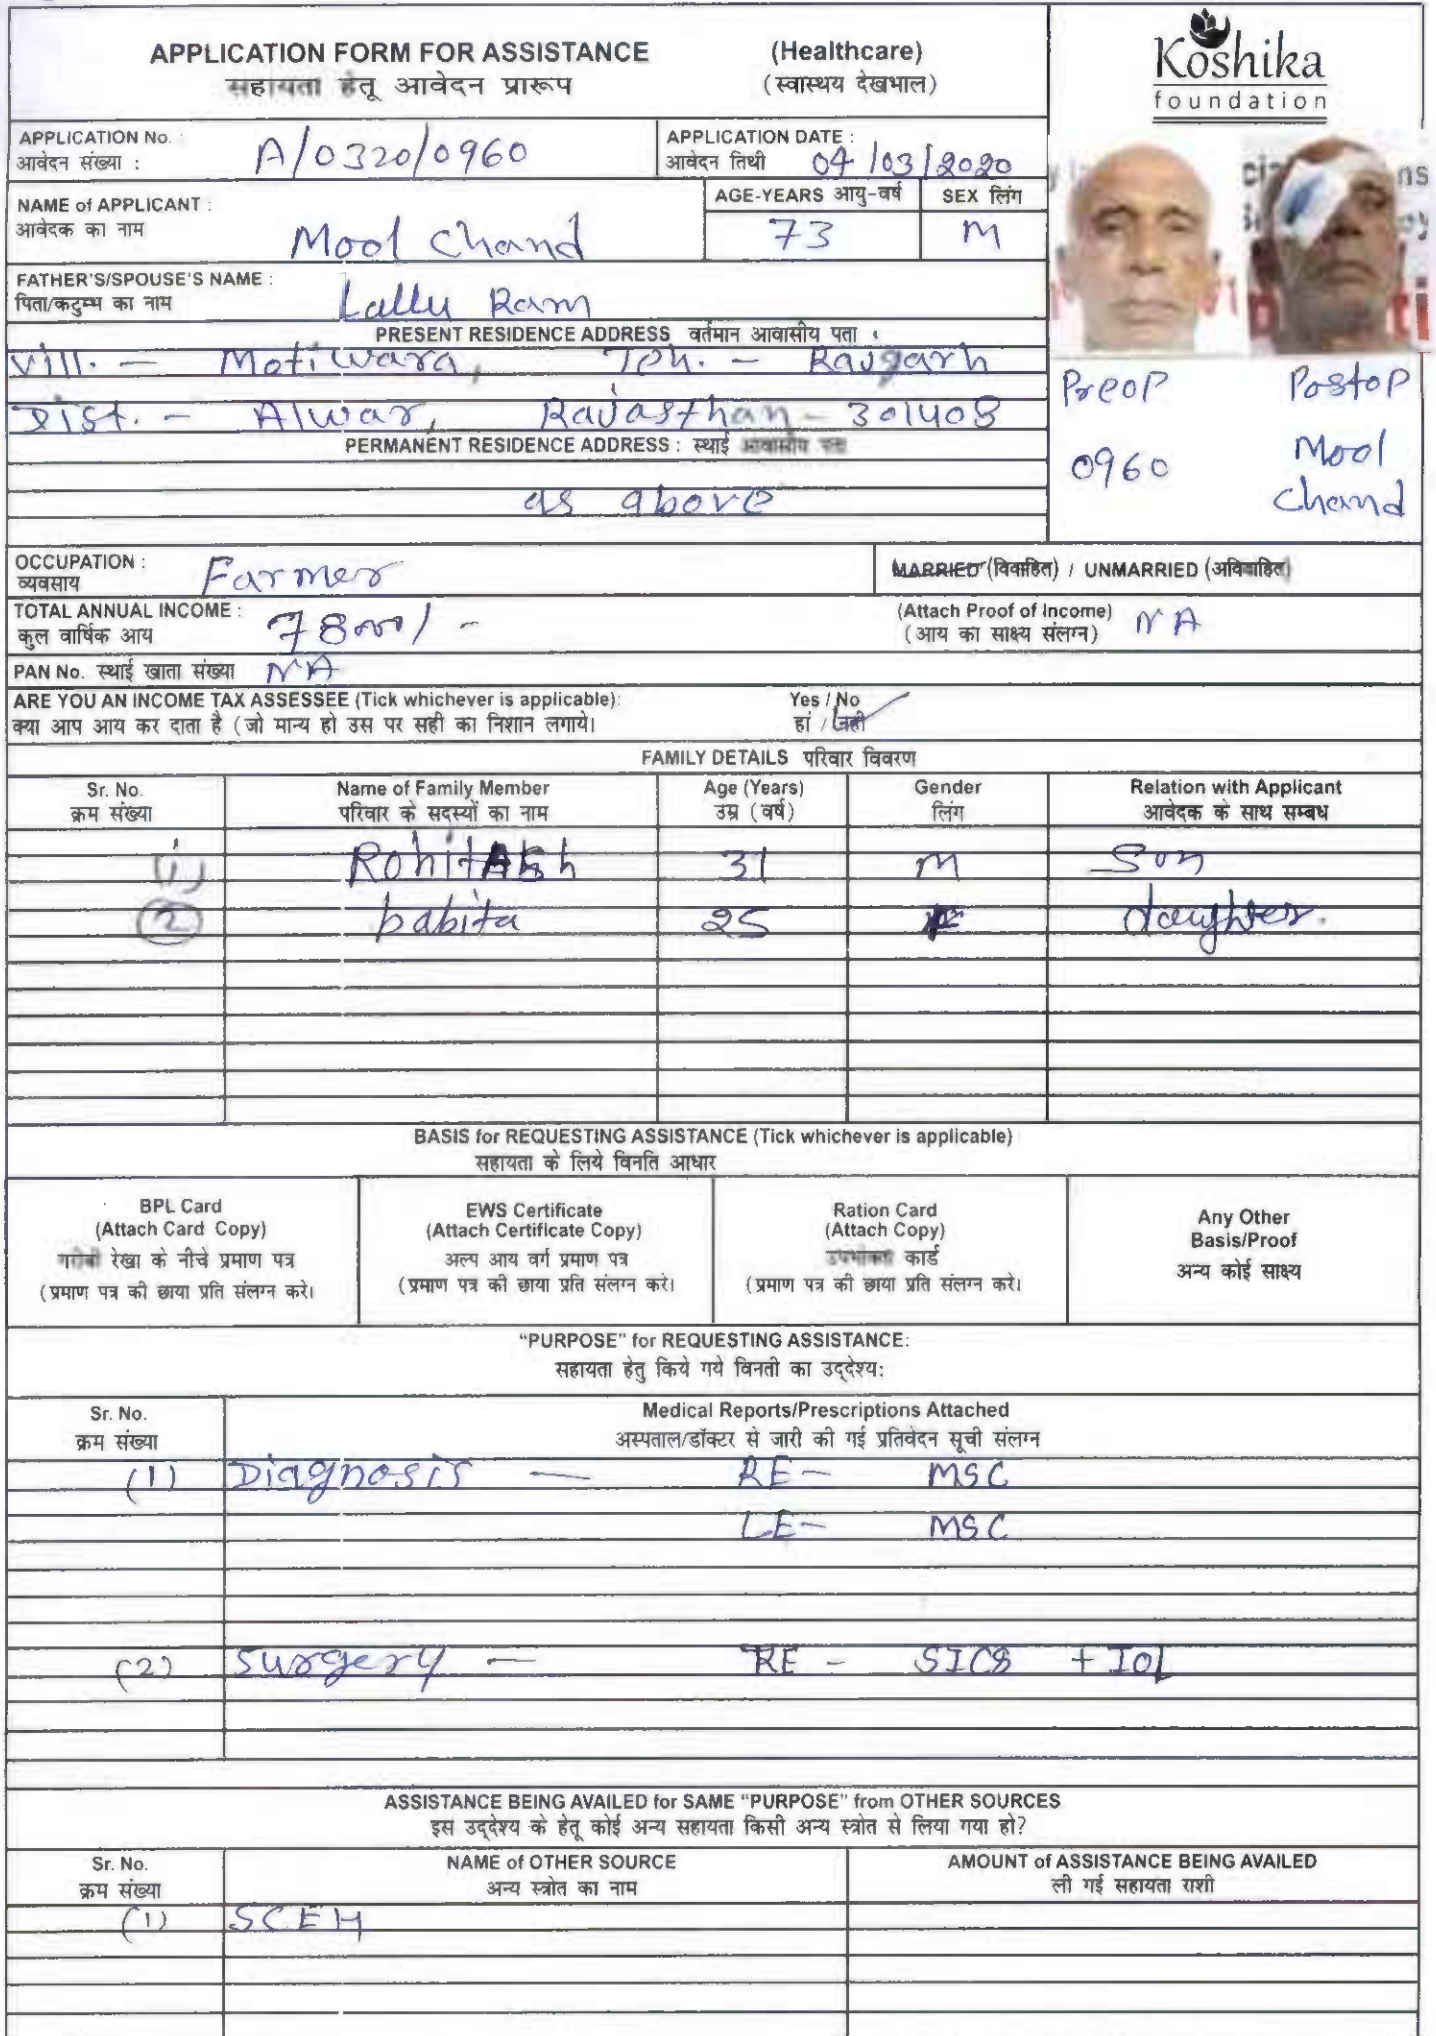 APPLICATION FORM FOR ASSISTANCE (Healthcare)
सहायता हेतू आवेदन प्रारूप (स्वास्थय देखभाल)
Koshika
foundation
APPLICATION No. :
आवेदन संख्या : A/0320/0960
APPLICATION DATE :
आवेदन तिथी 04/03/2020
NAME of APPLICANT :
आवेदक का नाम Mool Chand
AGE-YEARS आयु-वर्ष SEX लिंग
73 M
FATHER'S/SPOUSE'S NAME :
पिता/कटुम्भ का नाम Lallu Ram
PRESENT RESIDENCE ADDRESS वर्तमान आवासीय पता
Vill. - Motiwara, Teh. - Rajgarh
Dist. - Alwar, Rajasthan - 301408
PERMANENT RESIDENCE ADDRESS : स्थाई आवासीय पता
as above
Preop Postop
0960 Mool
Chand
OCCUPATION :
व्यवसाय Farmer
MARRIED (विवाहित) / UNMARRIED (अविवाहित)
TOTAL ANNUAL INCOME :
कुल वार्षिक आय 78000/-
(Attach Proof of Income)
(आय का साक्ष्य संलग्न) NA
PAN No. स्थाई खाता संख्या NA
ARE YOU AN INCOME TAX ASSESSEE (Tick whichever is applicable): Yes / No
क्या आप आय कर दाता है (जो मान्य हो उस पर सही का निशान लगाये। हां / नहीं
FAMILY DETAILS परिवार विवरण
Sr. No. Name of Family Member Age (Years) Gender Relation with Applicant
क्रम संख्या परिवार के सदस्यों का नाम उम्र (वर्ष) लिंग आवेदक के साथ सम्बध
(1) Rohitash 31 M Son
(2) babita 25 F daughter.
BASIS for REQUESTING ASSISTANCE (Tick whichever is applicable)
सहायता के लिये विनति आधार
BPL Card
(Attach Card Copy)
गरीबी रेखा के नीचे प्रमाण पत्र
(प्रमाण पत्र की छाया प्रति संलग्न करे।
EWS Certificate
(Attach Certificate Copy)
अल्प आय वर्ग प्रमाण पत्र
(प्रमाण पत्र की छाया प्रति संलग्न करे।
Ration Card
(Attach Copy)
उपभोक्ता कार्ड
(प्रमाण पत्र की छाया प्रति संलग्न करे।
Any Other
Basis/Proof
अन्य कोई साक्ष्य
"PURPOSE" for REQUESTING ASSISTANCE:
सहायता हेतु किये गये विनती का उद्देश्य:
Sr. No. Medical Reports/Prescriptions Attached
क्रम संख्या अस्पताल/डॉक्टर से जारी की गई प्रतिवेदन सूची संलग्न
(1) Diagnosis — RE - MSC
LE - MSC
(2) Surgery — RE - SICS + IOL
ASSISTANCE BEING AVAILED for SAME "PURPOSE" from OTHER SOURCES
इस उद्देश्य के हेतू कोई अन्य सहायता किसी अन्य स्त्रोत से लिया गया हो?
Sr. No. NAME of OTHER SOURCE AMOUNT of ASSISTANCE BEING AVAILED
क्रम संख्या अन्य स्त्रोत का नाम ली गई सहायता राशी
(1) SCEH